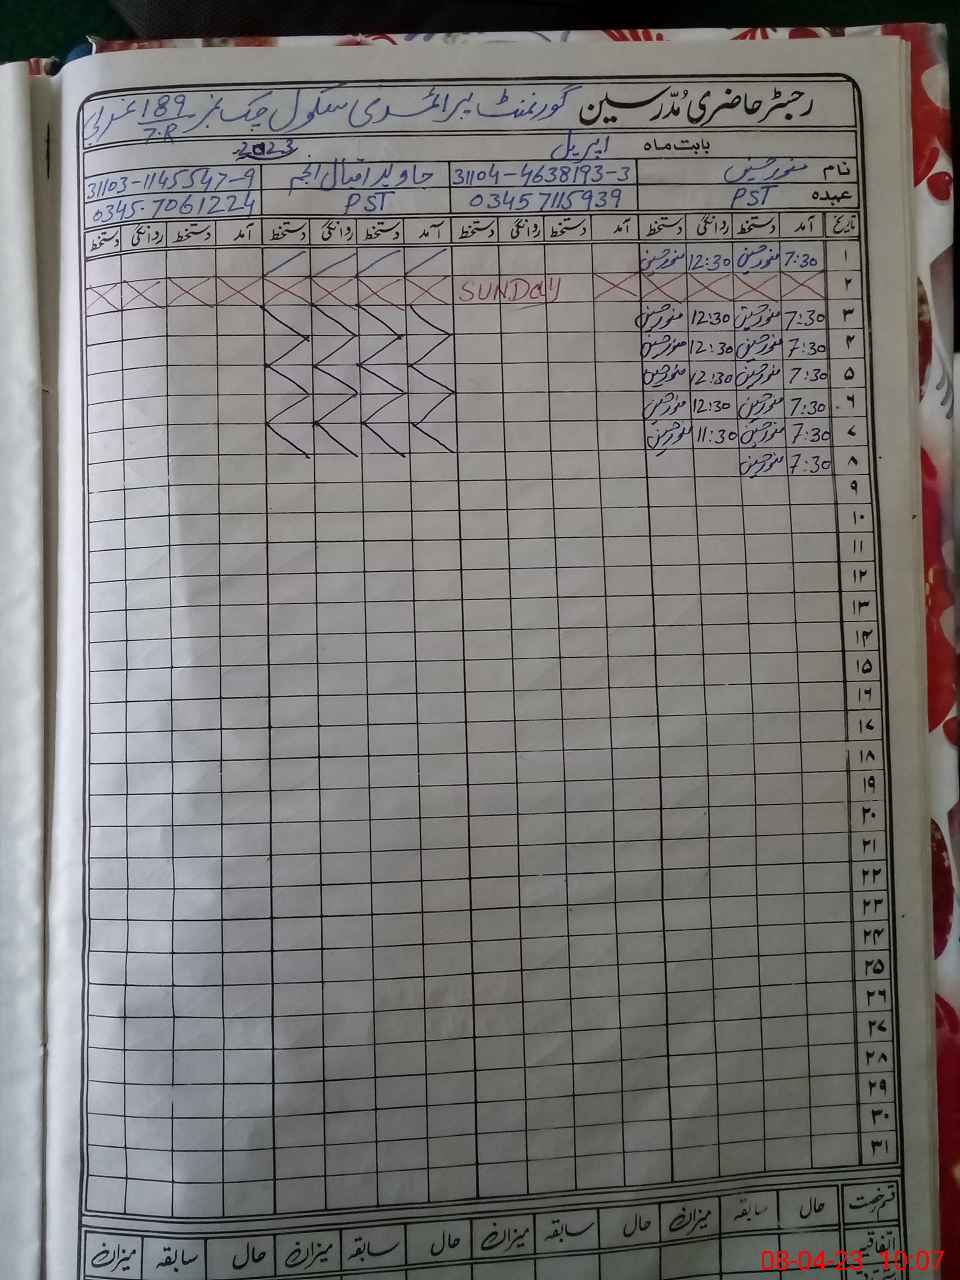 رجسٹر حاضری مدّرسین گورنمنٹ پرائمری سکول چک نمبر 189 غربی
7.R
بابت ماہ اپریل 2023
نام منور حسین 31104-4638193-3 جاوید اقبال انجم 31103-1145547-9
عہدہ PST 03457115939 PST 0345-7061224
تاریخ آمد دستخط روانگی دستخط آمد دستخط روانگی دستخط آمد دستخط روانگی دستخط آمد دستخط روانگی دستخط
۱ 7:30 منور حسین 12:30 منور حسین
۲ SUNDay
۳ 7:30 منور حسین 12:30 منور حسین
۴ 7:30 منور حسین 12:30 منور حسین
۵ 7:30 منور حسین 12:30 منور حسین
۶ 7:30 منور حسین 12:30 منور حسین
۷ 7:30 منور حسین 11:30 منور حسین
۸ 7:30 منور حسین
۹
۱۰
۱۱
۱۲
۱۳
۱۴
۱۵
۱۶
۱۷
۱۸
۱۹
۲۰
۲۱
۲۲
۲۳
۲۴
۲۵
۲۶
۲۷
۲۸
۲۹
۳۰
۳۱
قسم رخصت حال سابقہ میزان حال سابقہ میزان حال سابقہ میزان حال سابقہ میزان
اتفاقیہ
08-04-23 10:07